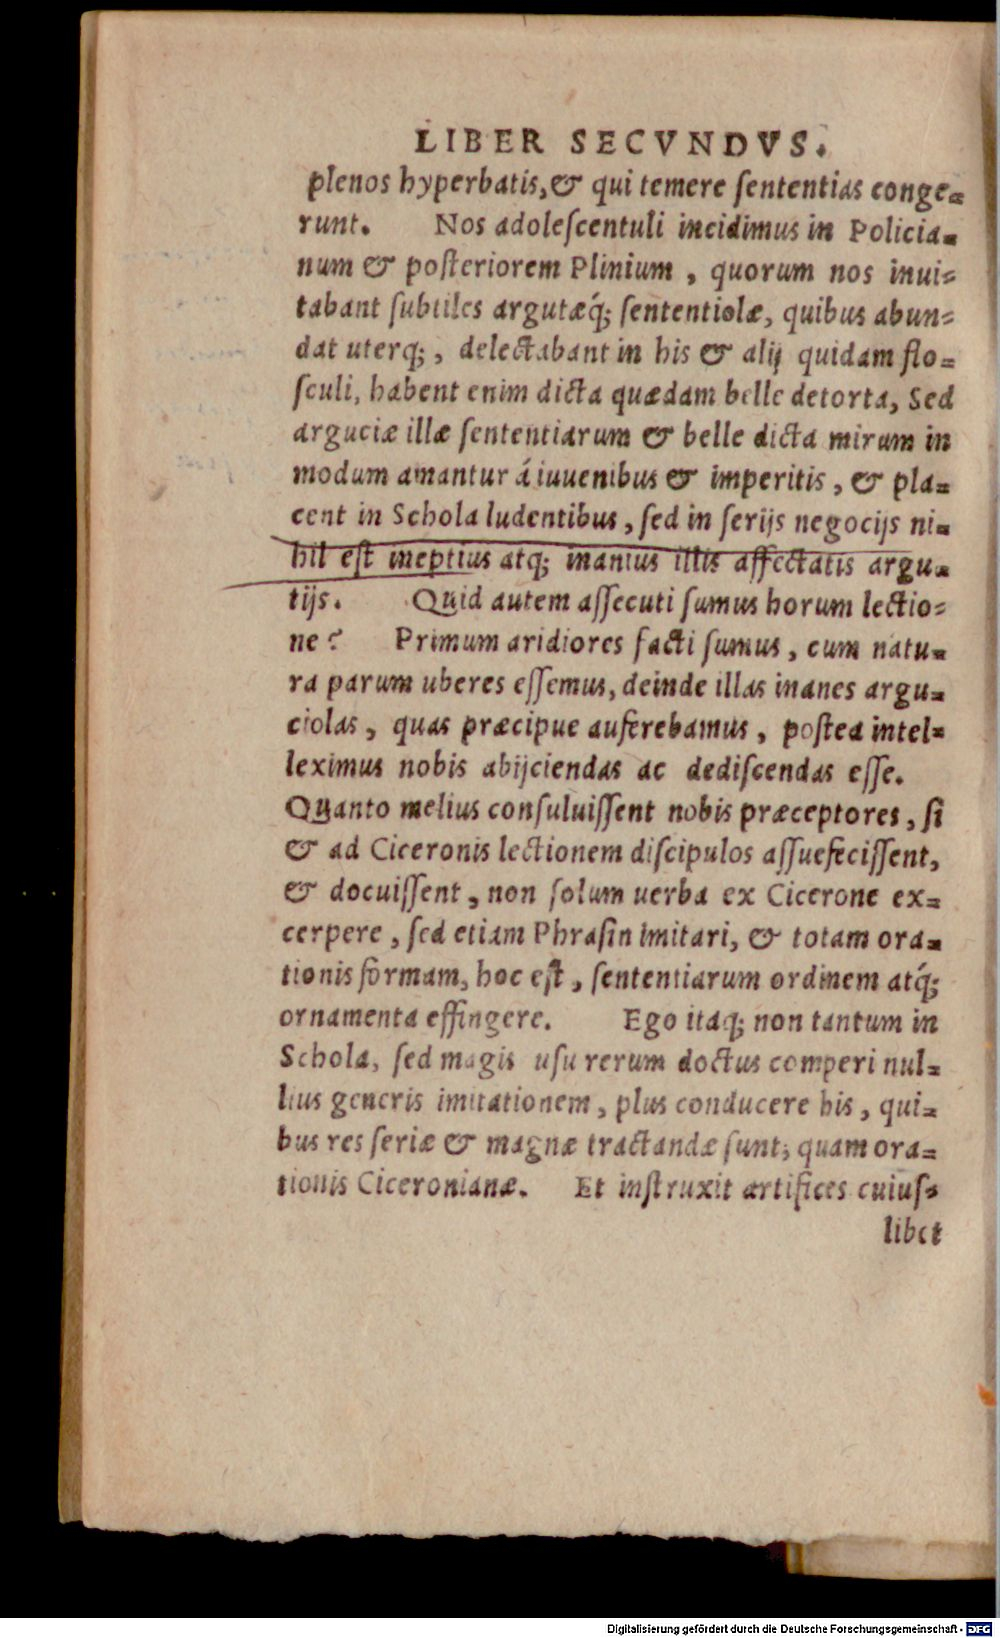 LIBER SECVNDVS.
plenos hyperbatis, & qui temere ſententias conge=
runt. Nos adoleſcentuli incidimus in Policia=
num & poſteriorem Plinium, quorum nos inui=
tabant ſubtiles argutæq́; ſententiolæ, quibus abun=
dat uterq;, delectabant in his & alij quidam flo=
ſculi, habent enim dicta quædam belle detorta, Sed
arguciæ illæ ſententiarum & belle dicta mirum in
modum amantur á iuuenibus & imperitis, & pla=
cent in Schola ludentibus, ſed in ſerijs negocijs ni=
hil eſt ineptius atq; inanius illis affectatis argu=
tijs. Quid autem aſſecuti ſumus horum lectio=
ne? Primum aridiores facti ſumus, cum natu=
ra parum uberes eſſemus, deinde illas inanes argu=
ciolas, quas præcipue auferebamus, poſtea intel=
leximus nobis abijciendas ac dediſcendas eſſe.
Quanto melius conſuluiſſent nobis præceptores, ſi
& ad Ciceronis lectionem diſcipulos aſſuefeciſſent,
& docuiſſent, non ſolum uerba ex Cicerone ex=
cerpere, ſed etiam Phraſin imitari, & totam ora=
tionis formam, hoc eſt, ſententiarum ordinem atq́;
ornamenta effingere. Ego itaq; non tantum in
Schola, ſed magis uſu rerum doctus comperi nul=
lius generis imitationem, plus conducere his, qui=
bus res ſeriæ & magnæ tractandæ ſunt; quam ora=
tionis Ciceronianæ. Et inſtruxit artifices cuiuſ=
libet
Digitalisierung gefördert durch die Deutsche Forschungsgemeinschaft - DFG